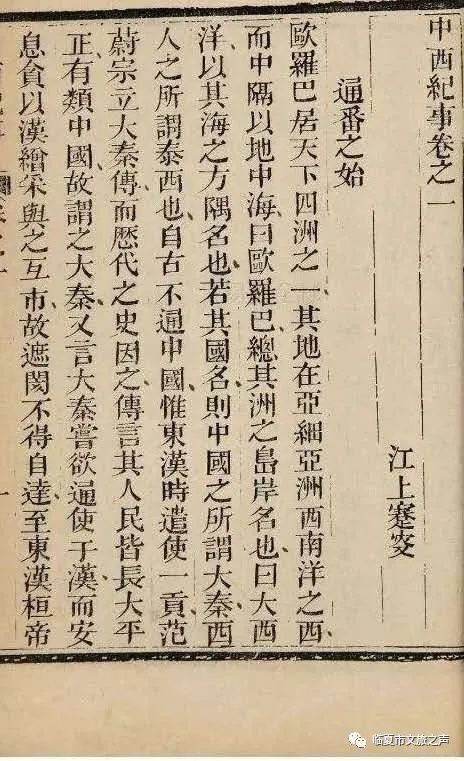 中西紀事卷之一
江上蹇叟
通番之始
歐羅巴居天下四洲之一其地在亞細亞洲西南洋之西
而中隔以地中海曰歐羅巴總其洲之島岸名也曰大西
洋以其海之方隅名也若其國名則中國之所謂大秦西
人之所謂泰西也自古不通中國惟東漢時遣使一貢范
蔚宗立大秦傳而歷代之史因之傳言其人民皆長大平
正有類中國故謂之大秦又言大秦嘗欲通使于漢而安
息貪以漢繒采與之互市故遮閡不得自達至東漢桓帝
臨夏市文旅之声